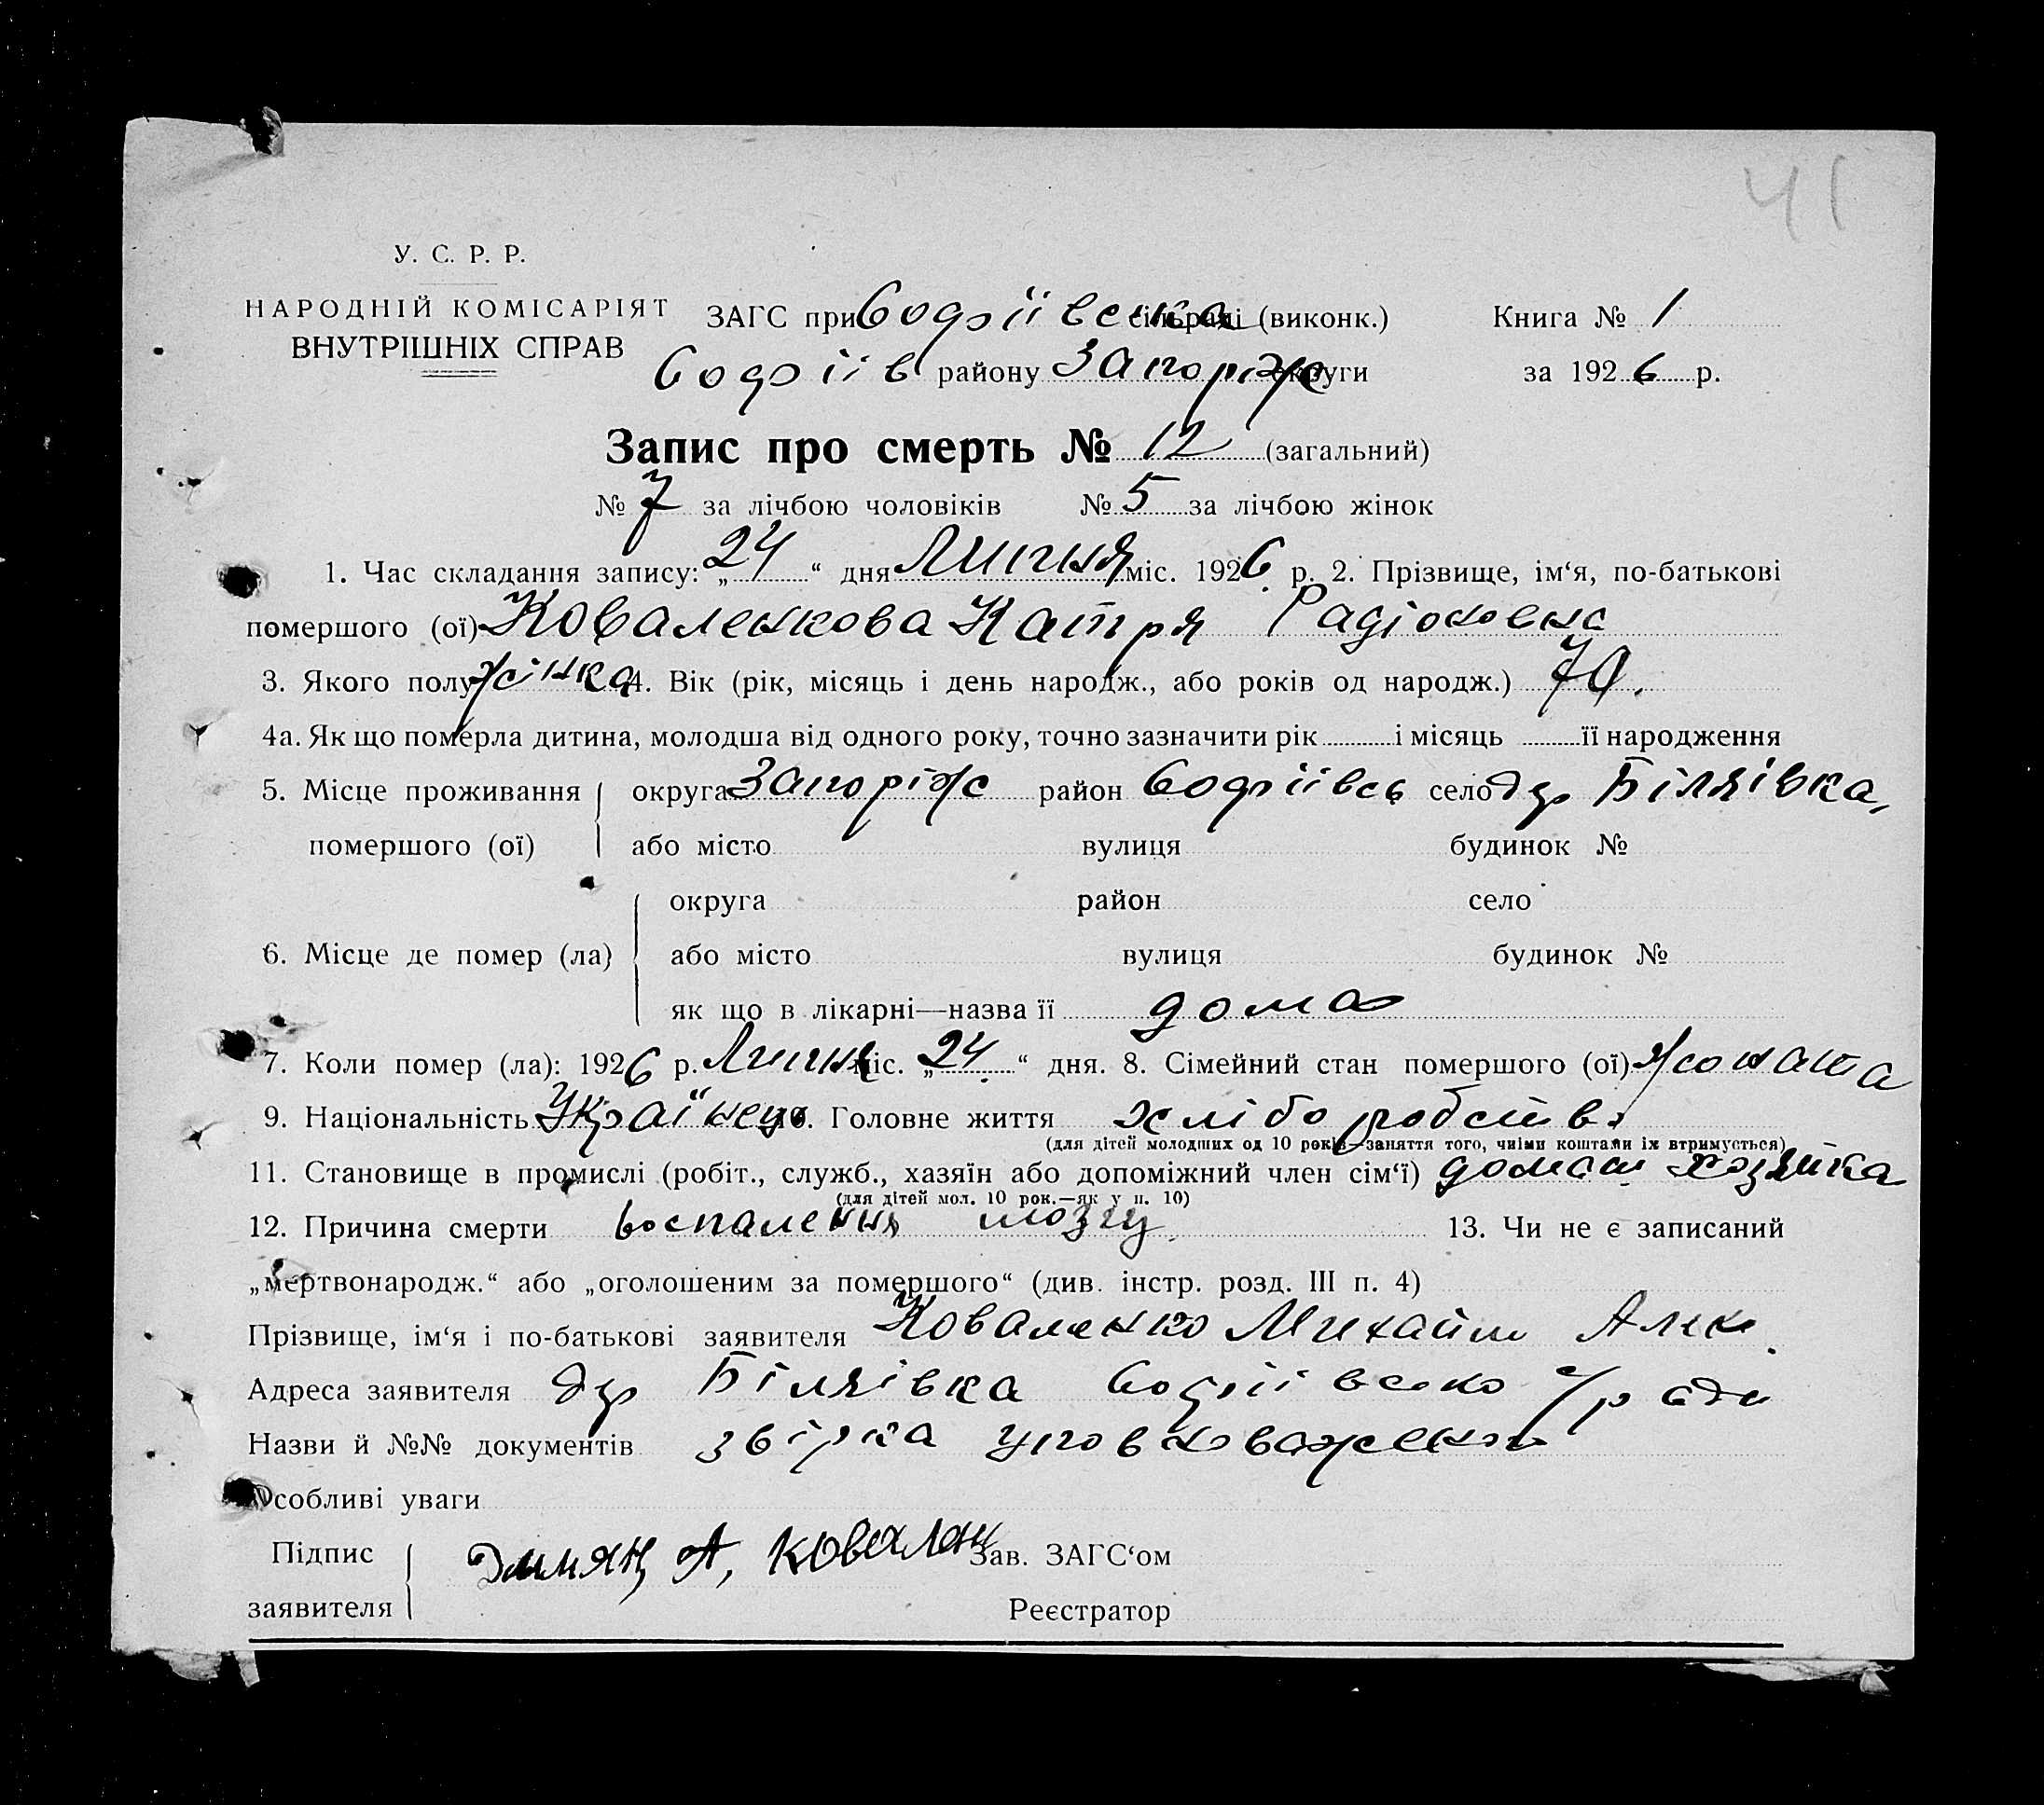 41
У. С. Р. Р.
НАРОДНІЙ КОМІСАРІЯТ
ВНУТРІШНІХ СПРАВ
ЗАГС при Софіївська сільраді (виконк.) Книга № 1
Софіїв району Запоріж округи за 1926 р.
Запис про смерть № 12 (загальний)
№ 7 за лічбою чоловіків № 5 за лічбою жінок
1. Час складання запису: „24“ дня Липня міс. 1926 р. 2. Прізвище, ім‘я, по-батькові
помершого (ої) Коваленкова Катря Радіоновна
3. Якого полу жінка 4. Вік (рік, місяць і день народж., або років од народж.) 70.
4а. Як що померла дитина, молодша від одного року, точно зазначити рік і місяць її народження
5. Місце проживання округа Запоріж район Софіївсь село дер Біляівка,
помершого (ої) або місто вулиця будинок №
округа район село
6. Місце де помер (ла) або місто вулиця будинок №
як що в лікарні—назва її дома
7. Коли помер (ла): 1926 р. Липня міс. „24.“ дня. 8. Сімейний стан помершого (ої) жоната
9. Національність Українець 10. Головне життя хліборобств
(для дітей молодших од 10 років—заняття того, чиїми коштами їх втримується)
11. Становище в промислі (робіт., служб., хазяїн або допоміжний член сім‘ї) домаш хозяйка
(для дітей мол. 10 рок.—як у п. 10)
12. Причина смерти воспаления мозгу 13. Чи не є записаний
„мертвонародж.“ або „оголошеним за помершого“ (див. інстр. розд. III п. 4)
Прізвище, ім‘я і по-батькові заявителя Коваленко Михайло Алек
Адреса заявителя дер Біляівка Софіївсько с/ради
Назви й №№ документів звірка уповноваженого
Особливі уваги
Підпис А, Ковален Зав. ЗАГС‘ом
заявителя Реєстратор